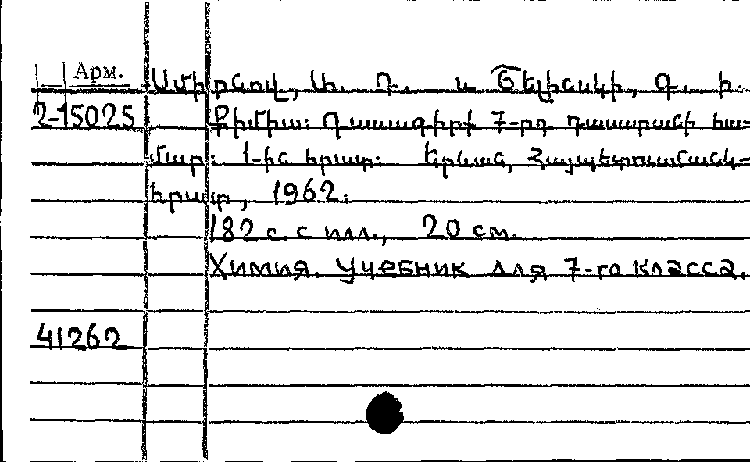 Арм. Սմիրնով, Ա. Դ. և Շելինսկի, Գ. Ի.
2-15025 Քիմիա: Դասագիրք 7-րդ դասարանի հա-
մար: 1-ին հրատ: Երևան, Հայպետուսմանկ-
հրատ, 1962.
182 с. с илл., 20 см.
Химия. Учебник для 7-го класса.
41262